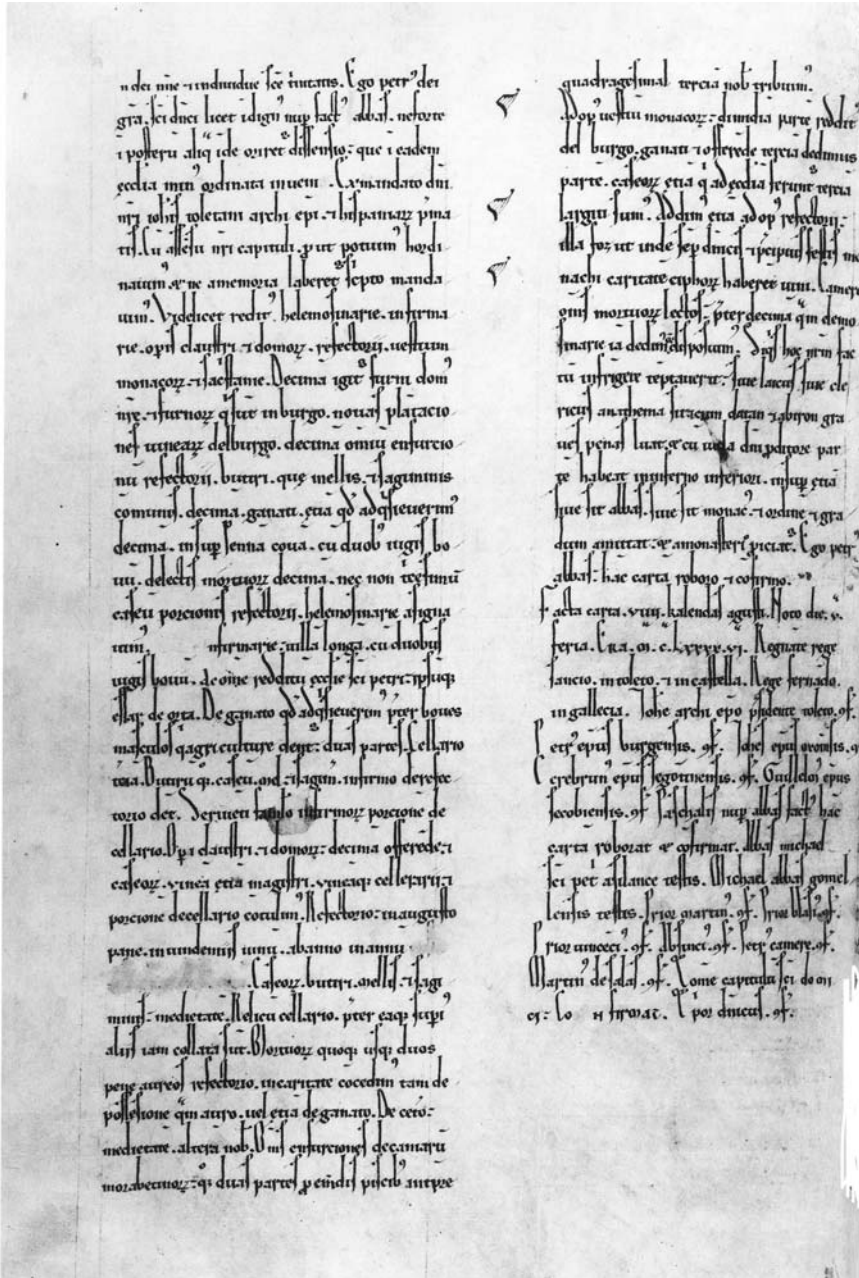 n dei nñe ⁊ indiuidue sc̃e t̃nitatis. Ego petr᾿ dei
gr̃a. sc̃i dñci licet ĩdign᾿ nup̃ fact᾿ abbas. ne forte
ĩ posterũ aliq̃ ĩde oriret᾿ dissensio: que ĩ eadem
eccl̃ia min᾿ ordinata inueni. Ex mandato dñi
nr̃i ioh̃is toletani archi ep̃i. ⁊ hispaniarꝝ p̃ma
tis. Cũ assẽsu nr̃i capituli. ꝓ ut potuim᾿ hordi
nauim᾿ & ne a memoria laberet᾿ sc̃pto manda
uim᾿. Videlicet reddit᾿ helemosinarie. infirma
rie. op̃is claustri. ⁊ domorꝝ. refectorii. uestium
monacorꝝ. ⁊ sac̃stanie. Decima igit᾿ furni dom᾿
nr̃e. ⁊ furnorꝝ q̃ sũt in burgo. nouas plãtacio
nes uinearꝝ del burgo. decima omiũ enfurcio
nũ refectorii. butiri. quę mellis. ⁊ saguinis
comunis. decima. ganati. etiã qd̃ adq̃sieuerim᾿
decimã. insup̃ senna coua. cũ duob᾿ iugis bo
uũ. de lectis mortuorꝝ decima. nec non
caseũ porcionis refectorii. helemosinarie asigna
uim᾿. nfirmarie: uilla longa. cũ duobus
iugis bouũ. de om̃e redditũ eccl̃ie sc̃i petri: ip̃suq̃
ellar de orta. De ganato qd̃ adq̃sieuerim᾿ p̃ter boues
masculos q̃ agriculture dent᾿: duas partes. Cellario
t̃cia. Butirũ q̃. caseũ. mel. ⁊ sagim. infirmo de refec
torio det᾿. Seruieti infirmorꝝ porcione de
cellario. Op̃i claustri. ⁊ domorꝝ: decima offerẽde. ⁊
caseorꝝ. uinea etiã magistri. uineaq̃ cellerarii: ⁊
porcione de cellario cotulim᾿. Refectorio: in augusto
pane. in uindemiis uinũ. ab anno in annũ
Caseorꝝ. butiri. mellis. ⁊ sagi
minis: medietatẽ. Relicũ cellario. p̃ter eaq̃ sup̃i᾿
aliis iam collata sũt. Mortuorꝝ quoq̃ usq̃ duos
pene aureos refectorio. in caritate cõcedim᾿ tam de
possesione q̃m auro. uel etiã de ganato. De cet̃o:
medietatẽ. alterã nob̃. Om̃is enfurciones decaniarũ
morabetinorꝝ: q̃. duas partes ꝓ emẽdis piscib᾿ ant̃pre
quadragesimal᾿ terciã nob̃ tribuim᾿.
Ad op᾿ uestiũ monacorꝝ: dimidiã partẽ reddit᾿
del burgo. ganati ⁊ offerẽde terciã dedimus
partẽ. caseorꝝ etiã q̃ ad eccl̃iã ferunt᾿ terciã
largiti sum᾿. Addim᾿ etiã ad op᾿ refectorii:
illa for ut inde semp̃ dñicis ⁊ p̃cipuis festis mo
nachi caritatẽ ciphorꝝ haberet uini. Camere
om̃is mortuorꝝ lectos: p̃ter decimã q̃m elemo
sinarie iã dedim᾿ disposuim᾿. Siq̃s hoc nr̃m fac
tũ infrigere tẽptauerit: siue laicus. siue cle
ricus anathema sit ⁊ cum datan ⁊ abiron gra
ues penas luat. & cũ iuda dñi ꝓditore par
tẽ habeat in inferno inferiori. insup̃ etiã
siue sit abbas. siue sit monac᾿. ⁊ ordine ⁊ gra
dum amittat. & a monasterĩ ꝓiciat᾿. Ego petr᾿
abbas: hac carta roboro ⁊ cõfirmo.
Facta carta. viiii. kalendas agusti. Noto die. v.
feria. Era. m̃. c̃. Lxxxx. vi. Regnãte rege
sancio. in toleto. ⁊ in castella. Rege fernãdo.
in gallecia. Joh̃e archi ep̃o p̃sidente toleto. ꝯf.
Petr᾿ ep̃us burgensis. ꝯf. Joh̃es ep̃us oxomsis. ꝯ
Cerebrun᾿ ep̃us segotinensis. ꝯf. Guillelm᾿ ep̃us
secobiensis. ꝯf Paschalis nup̃ abbas fact᾿ hãc
cartã roborat & cõfirmat. Abbas michael
sc̃i pet̃ asilance testis. Michael abbas gomel
lensis testis. Prior martin᾿. ꝯf. Prior blasi᾿. ꝯf.
Prior uincẽci᾿. ꝯf. absinci᾿. ꝯf. Petr᾿ camere. ꝯf.
Martin᾿ de salas. ꝯf. Com̃e capitulũ sc̃i do mi
ci: Co N firmat. por dñicus. ꝯf.